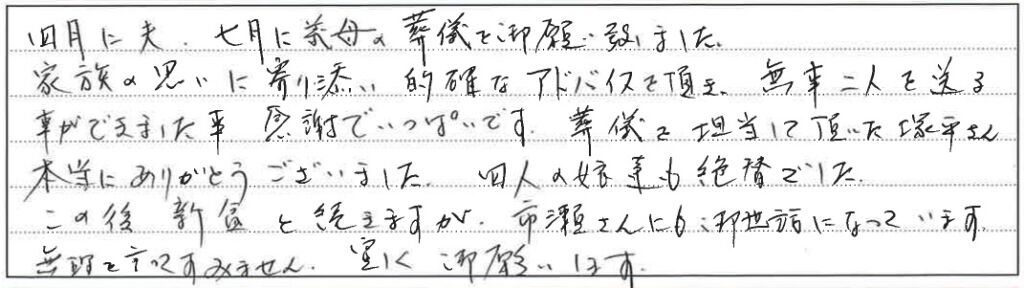 四月に夫、七月に義母の葬儀を御願い致しました。
家族の思いに寄り添い的確なアドバイスを頂き、無事二人を送る
事ができました事感謝でいっぱいです。葬儀を担当して頂いた塚平さん
本当にありがとうございました。四人の娘達も絶賛でした。
この後新盆と続きますが、市瀬さんにも御世話になっています。
無理を言ってすみません。宜しく御願いします。